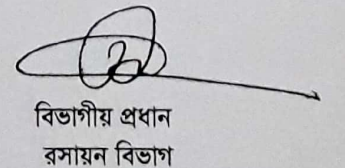 বিভাগীয় প্রধান
রসায়ন বিভাগ